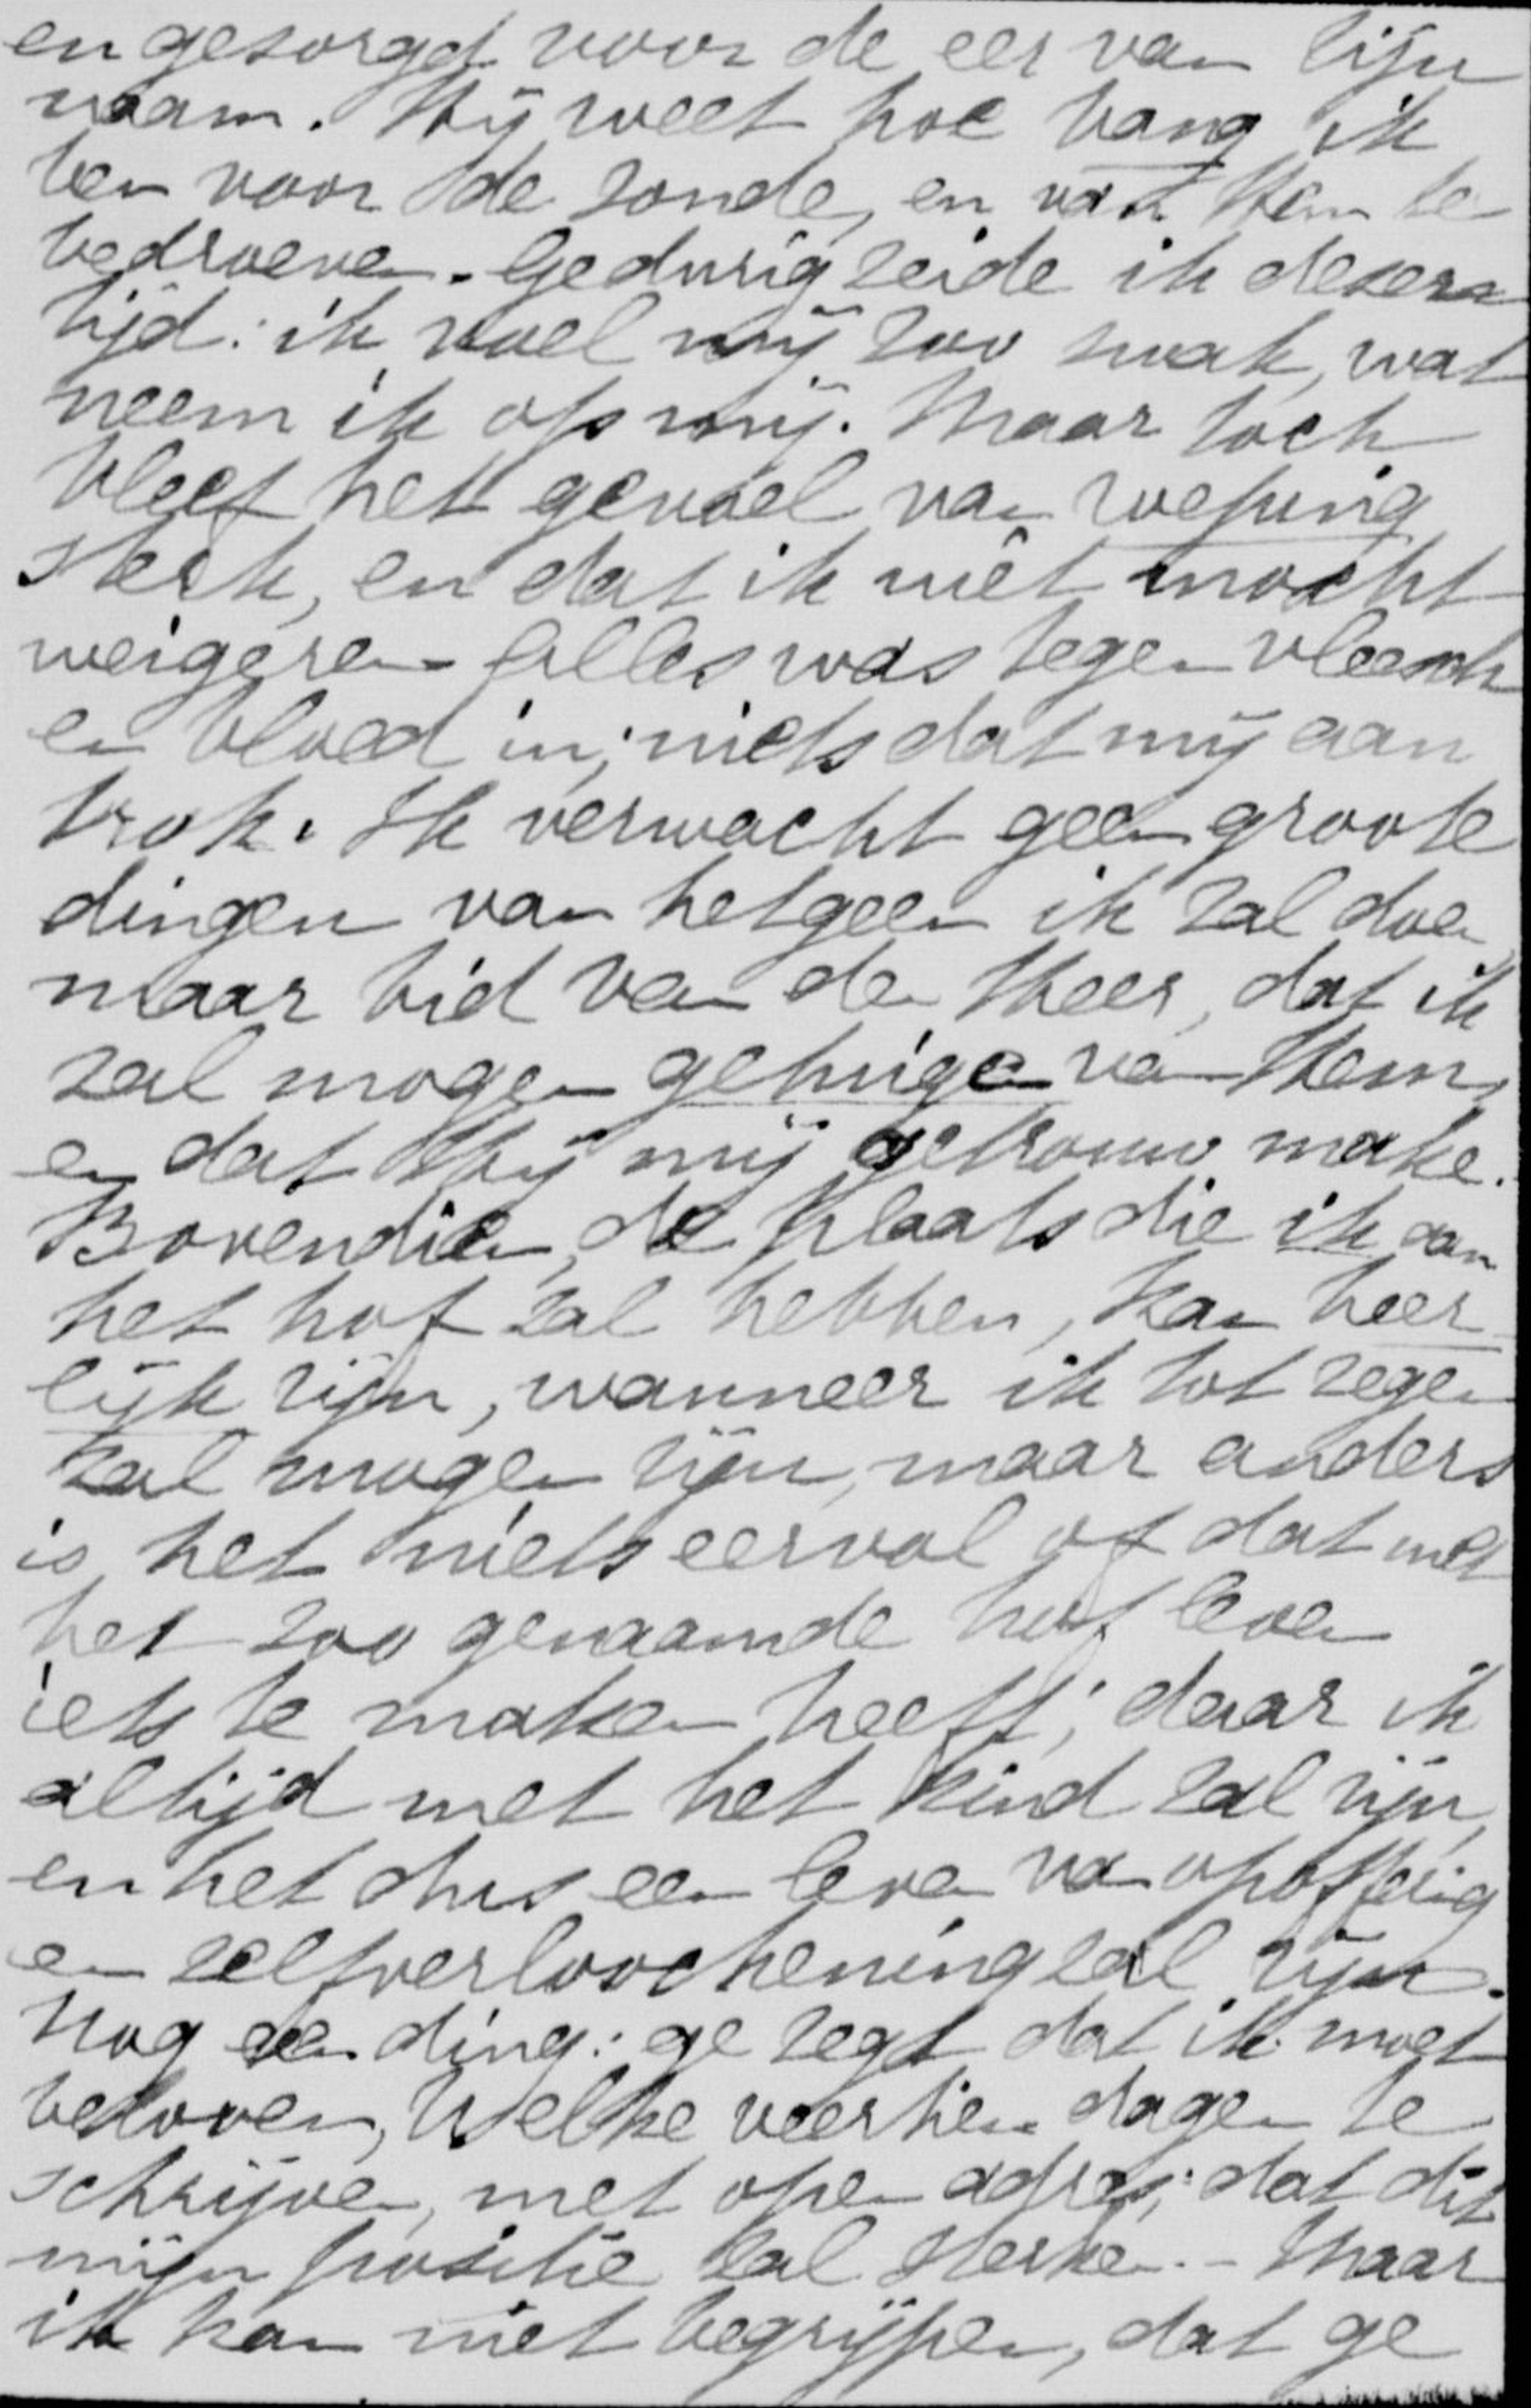 en gezorgd voor de eer van Zijn
naam. Hij weet hoe bang ik
ben voor de zonde, en van Hem te
bedroeven. Gedurig zeide ik dezen
tijd: ik voel mij zoo zwak, wat
neem ik op mij. Maar toch
bleef het gevoel van roeping
sterk, en dat ik niet mocht
weigeren. Alles was tegen vleesch
en bloed in; niets dat mij aan
trok. Ik verwacht geen groote
dingen van hetgeen ik zal doen
maar bid van den Heer, dat ik
zal mogen getuigen van Hem,
en dat Hij mij getrouw make.
Bovendien, de plaats die ik aan
het hof zal hebben, kan heer
lijk zijn, wanneer ik tot zegen
zal mogen zijn, maar anders
is het niets eervol of dat met
het zoo genaamde hof leven
iets te maken heeft; daar ik
altijd met het kind zal zijn,
en het dus een leven van opoffering
en zelfverloochening zal zijn.
Nog een ding: ge zegt dat ik moet
beloven, elke veertien dagen te
schrijven, met open adres; dat dit
mijn positie zal sterken. - Maar
ik kan niet begrijpen, dat ge